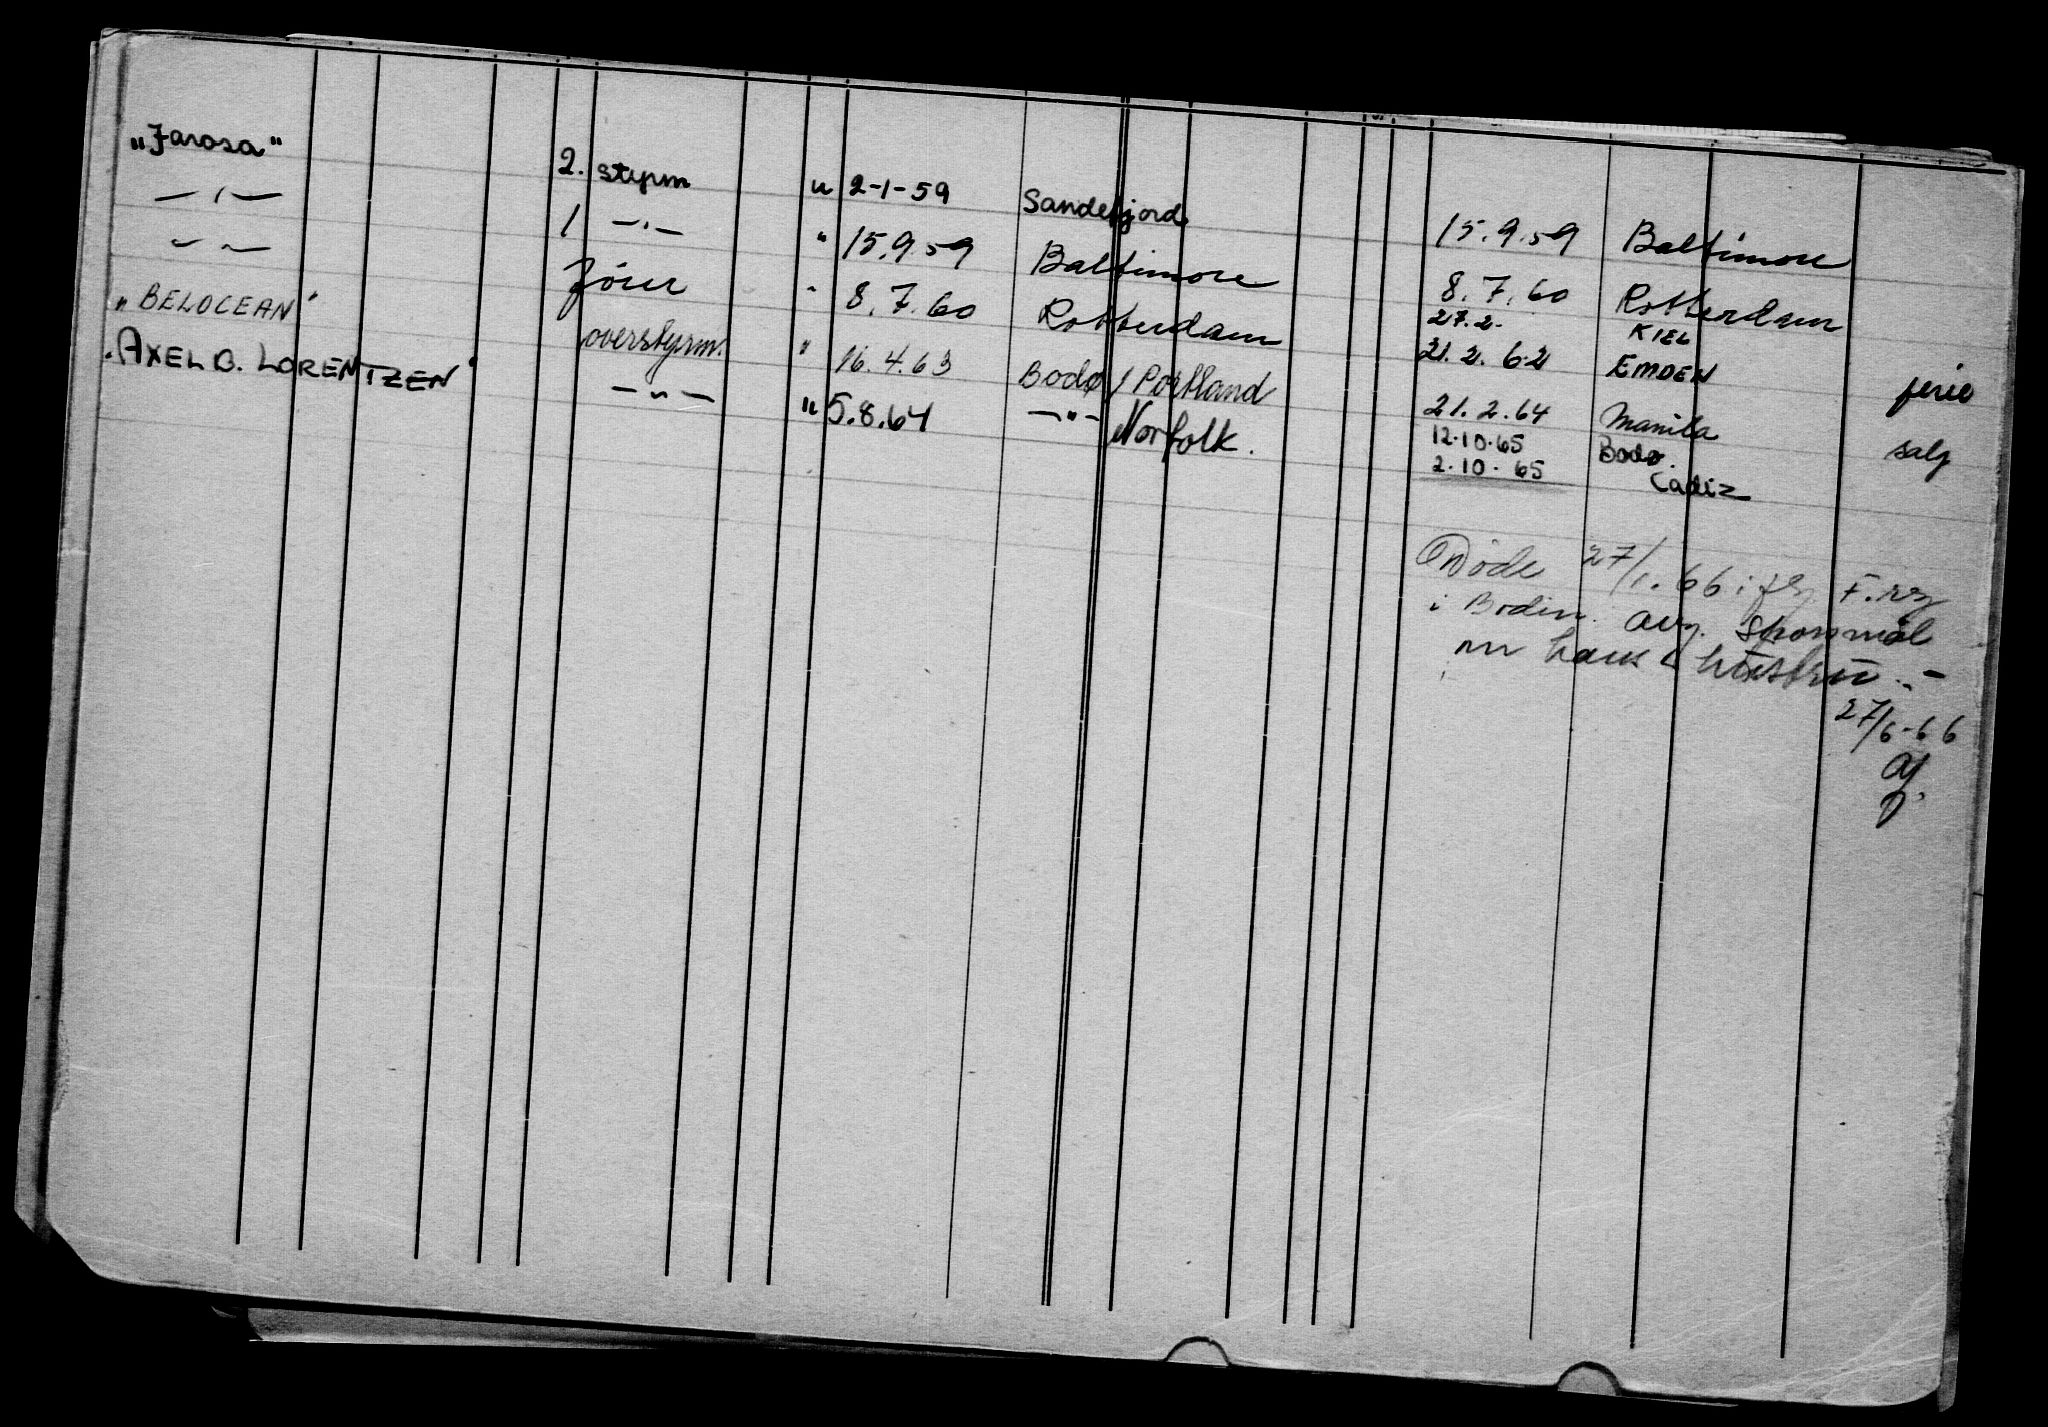 "Jarosa" 2. styrm " 2-1-59 Sandefjord 15.9.59 Baltimore
—"— 1 —"— " 15.9.59 Baltimore 8.7.60 Rotterdam
—"— " 8.7.60 Rotterdam 27.2. KIEL
21.2.62 EMDEN ferie
"BELOCEAN" overstyrm. " 16.4.63 Bodø / Portland 21.2.64 Manila salg
"AXEL B. LORENTZEN" —"— " 5.8.64 —"— Norfolk. 12.10.65 Bodø.
2.10.65 Cadiz
Døde 27/1.66 i flg. F.reg
i Bodin. avg. skossmål
27/6-66